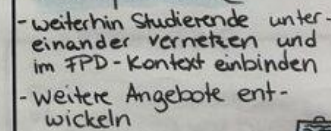 - weiterhin Studierende unter-
einander vernetzen und
im FPD-Kontext einbinden
- weitere Angebote ent-
wickeln